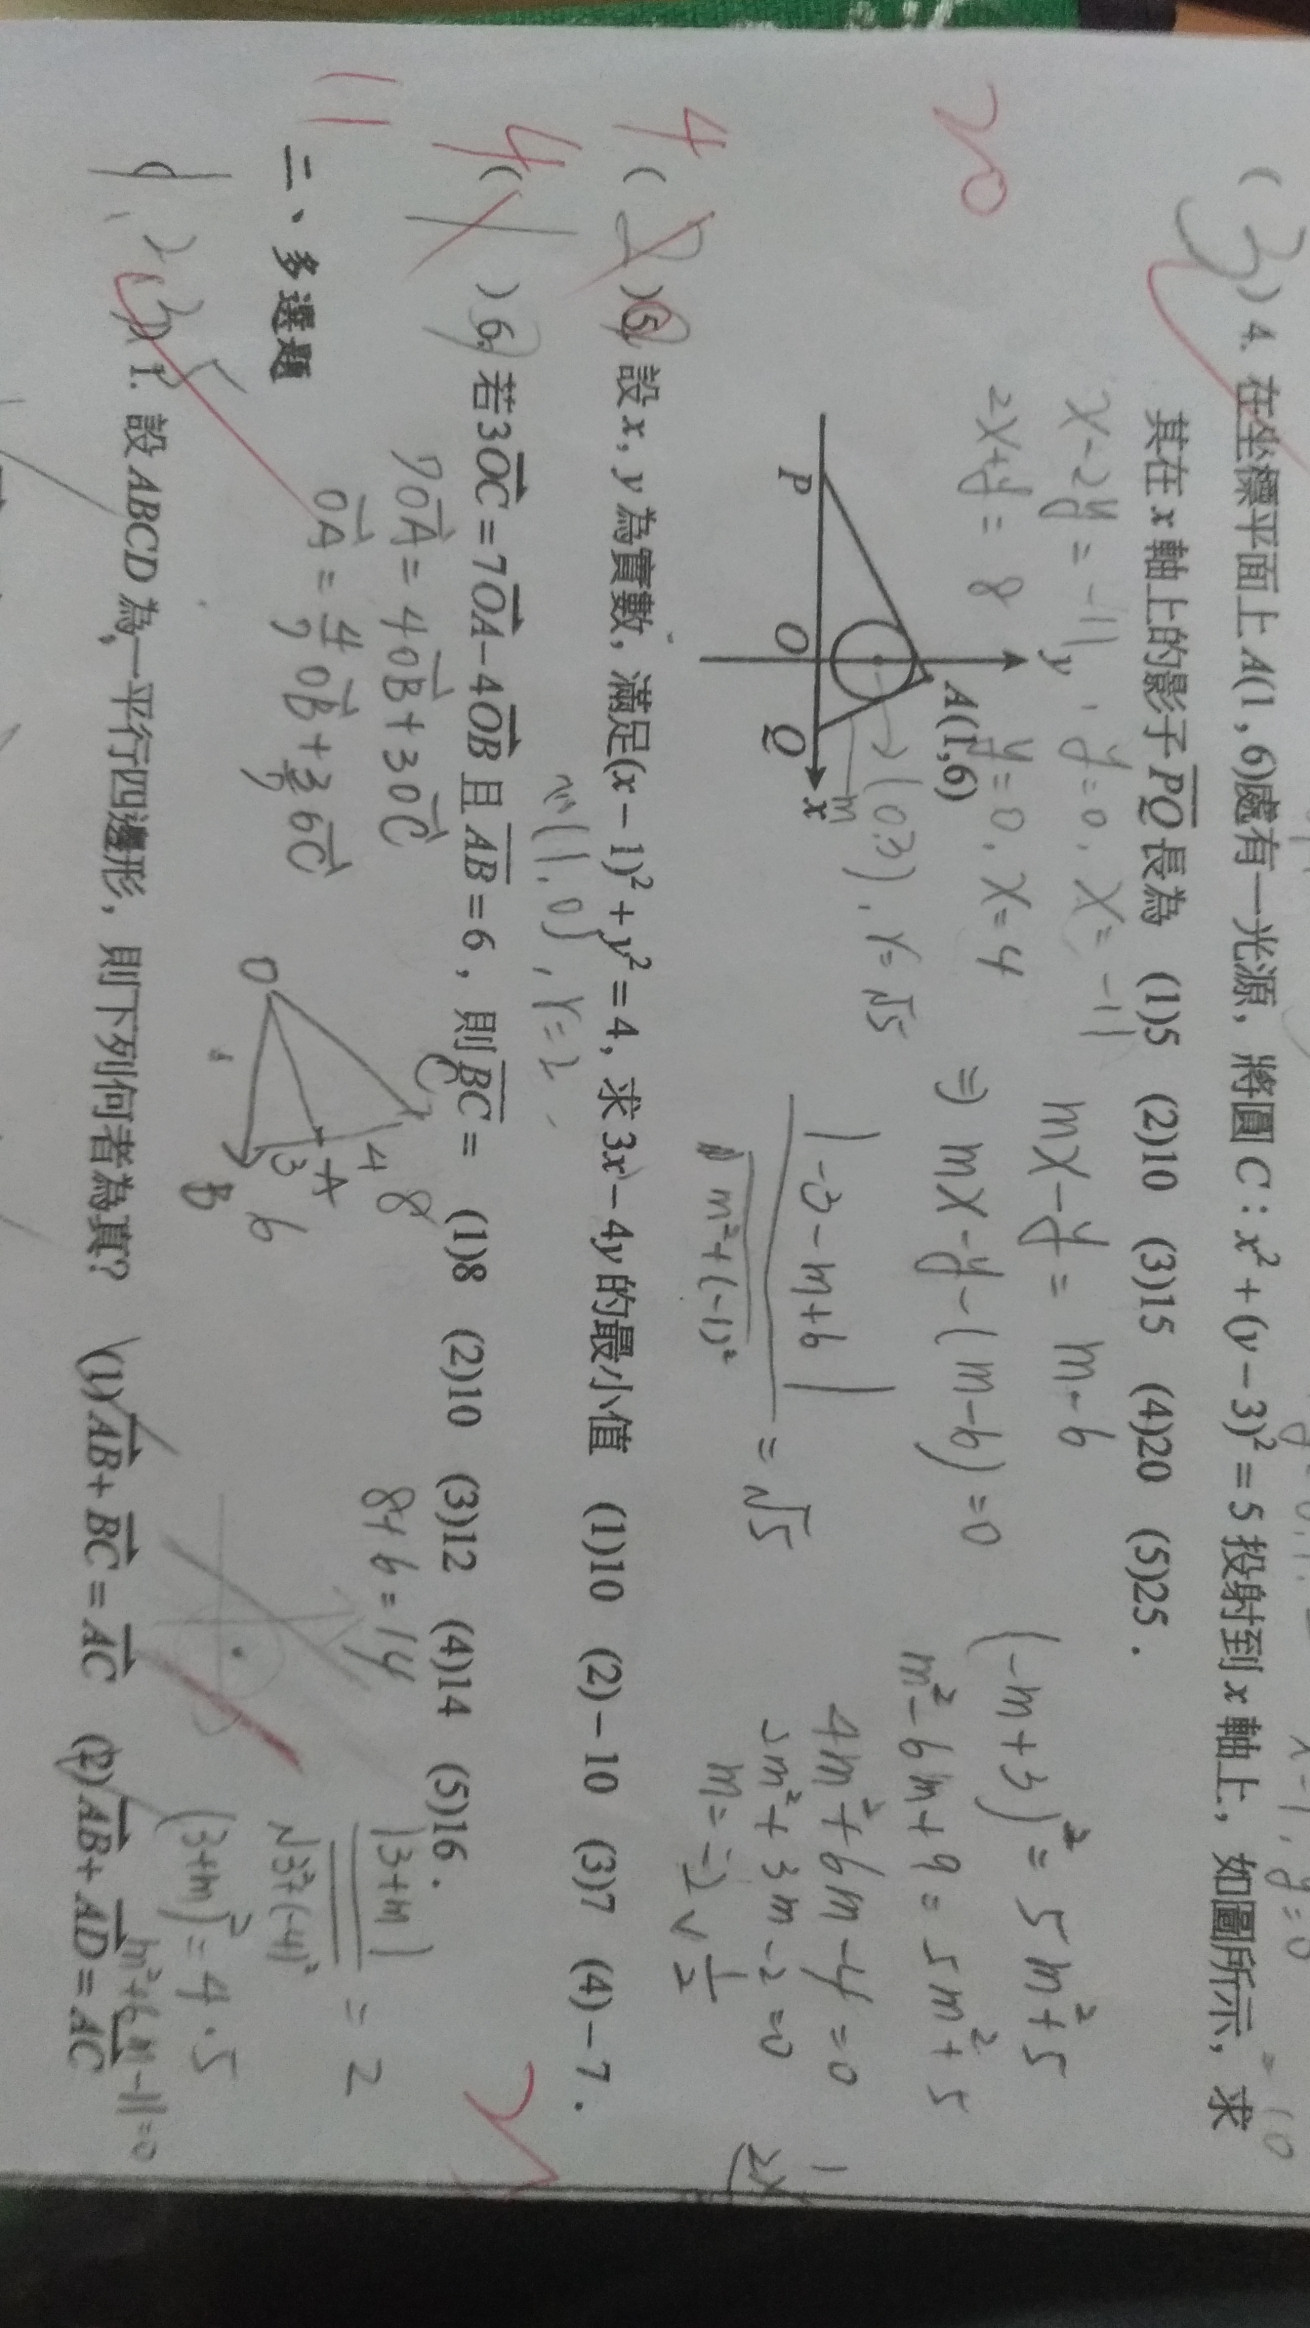 20
( 3 ) 4. 在坐標平面上A(1 , 6)處有一光源，將圓C : x² + (y − 3)² = 5投射到x軸上，如圖所示，求
其在x軸上的影子PQ長為 (1)5 (2)10 (3)15 (4)20 (5)25．
x-2y = -11, y=0, x= -11
2x+y = 8 y=0, x=4
mx-y = m-6
⇒ mx-y-(m-6)=0
|-3-m+6|
√m²+(-1)² = √5
(-m+3)² = 5m²+5
m²-6m+9 = 5m²+5
4m²+6m-4=0
2m²+3m-2=0
m= -2 ∨ 1/2
y
A(1,6)
(0,3), r=√5
m
P O Q x
4 ( 2 ) 5. 設x , y為實數，滿足(x − 1)² + y² = 4，求3x − 4y的最小值 (1)10 (2)− 10 (3)7 (4)− 7．
(1,0), r=2
|3+m|
√3²+(-4)² = 2
(3+m)² = 4·5
m²+6m-11=0
4 ( ) 6. 若3OC = 7OA − 4OB且AB = 6，則BC = (1)8 (2)10 (3)12 (4)14 (5)16．
7OA = 4OB+3OC
OA = 4/7 OB + 3/7 OC
O C 4 8 A 3 6 B
8+6=14
11
二、多選題
1, 2, 3 ) 1. 設ABCD為一平行四邊形，則下列何者為真? (1)AB + BC = AC (2)AB + AD = AC